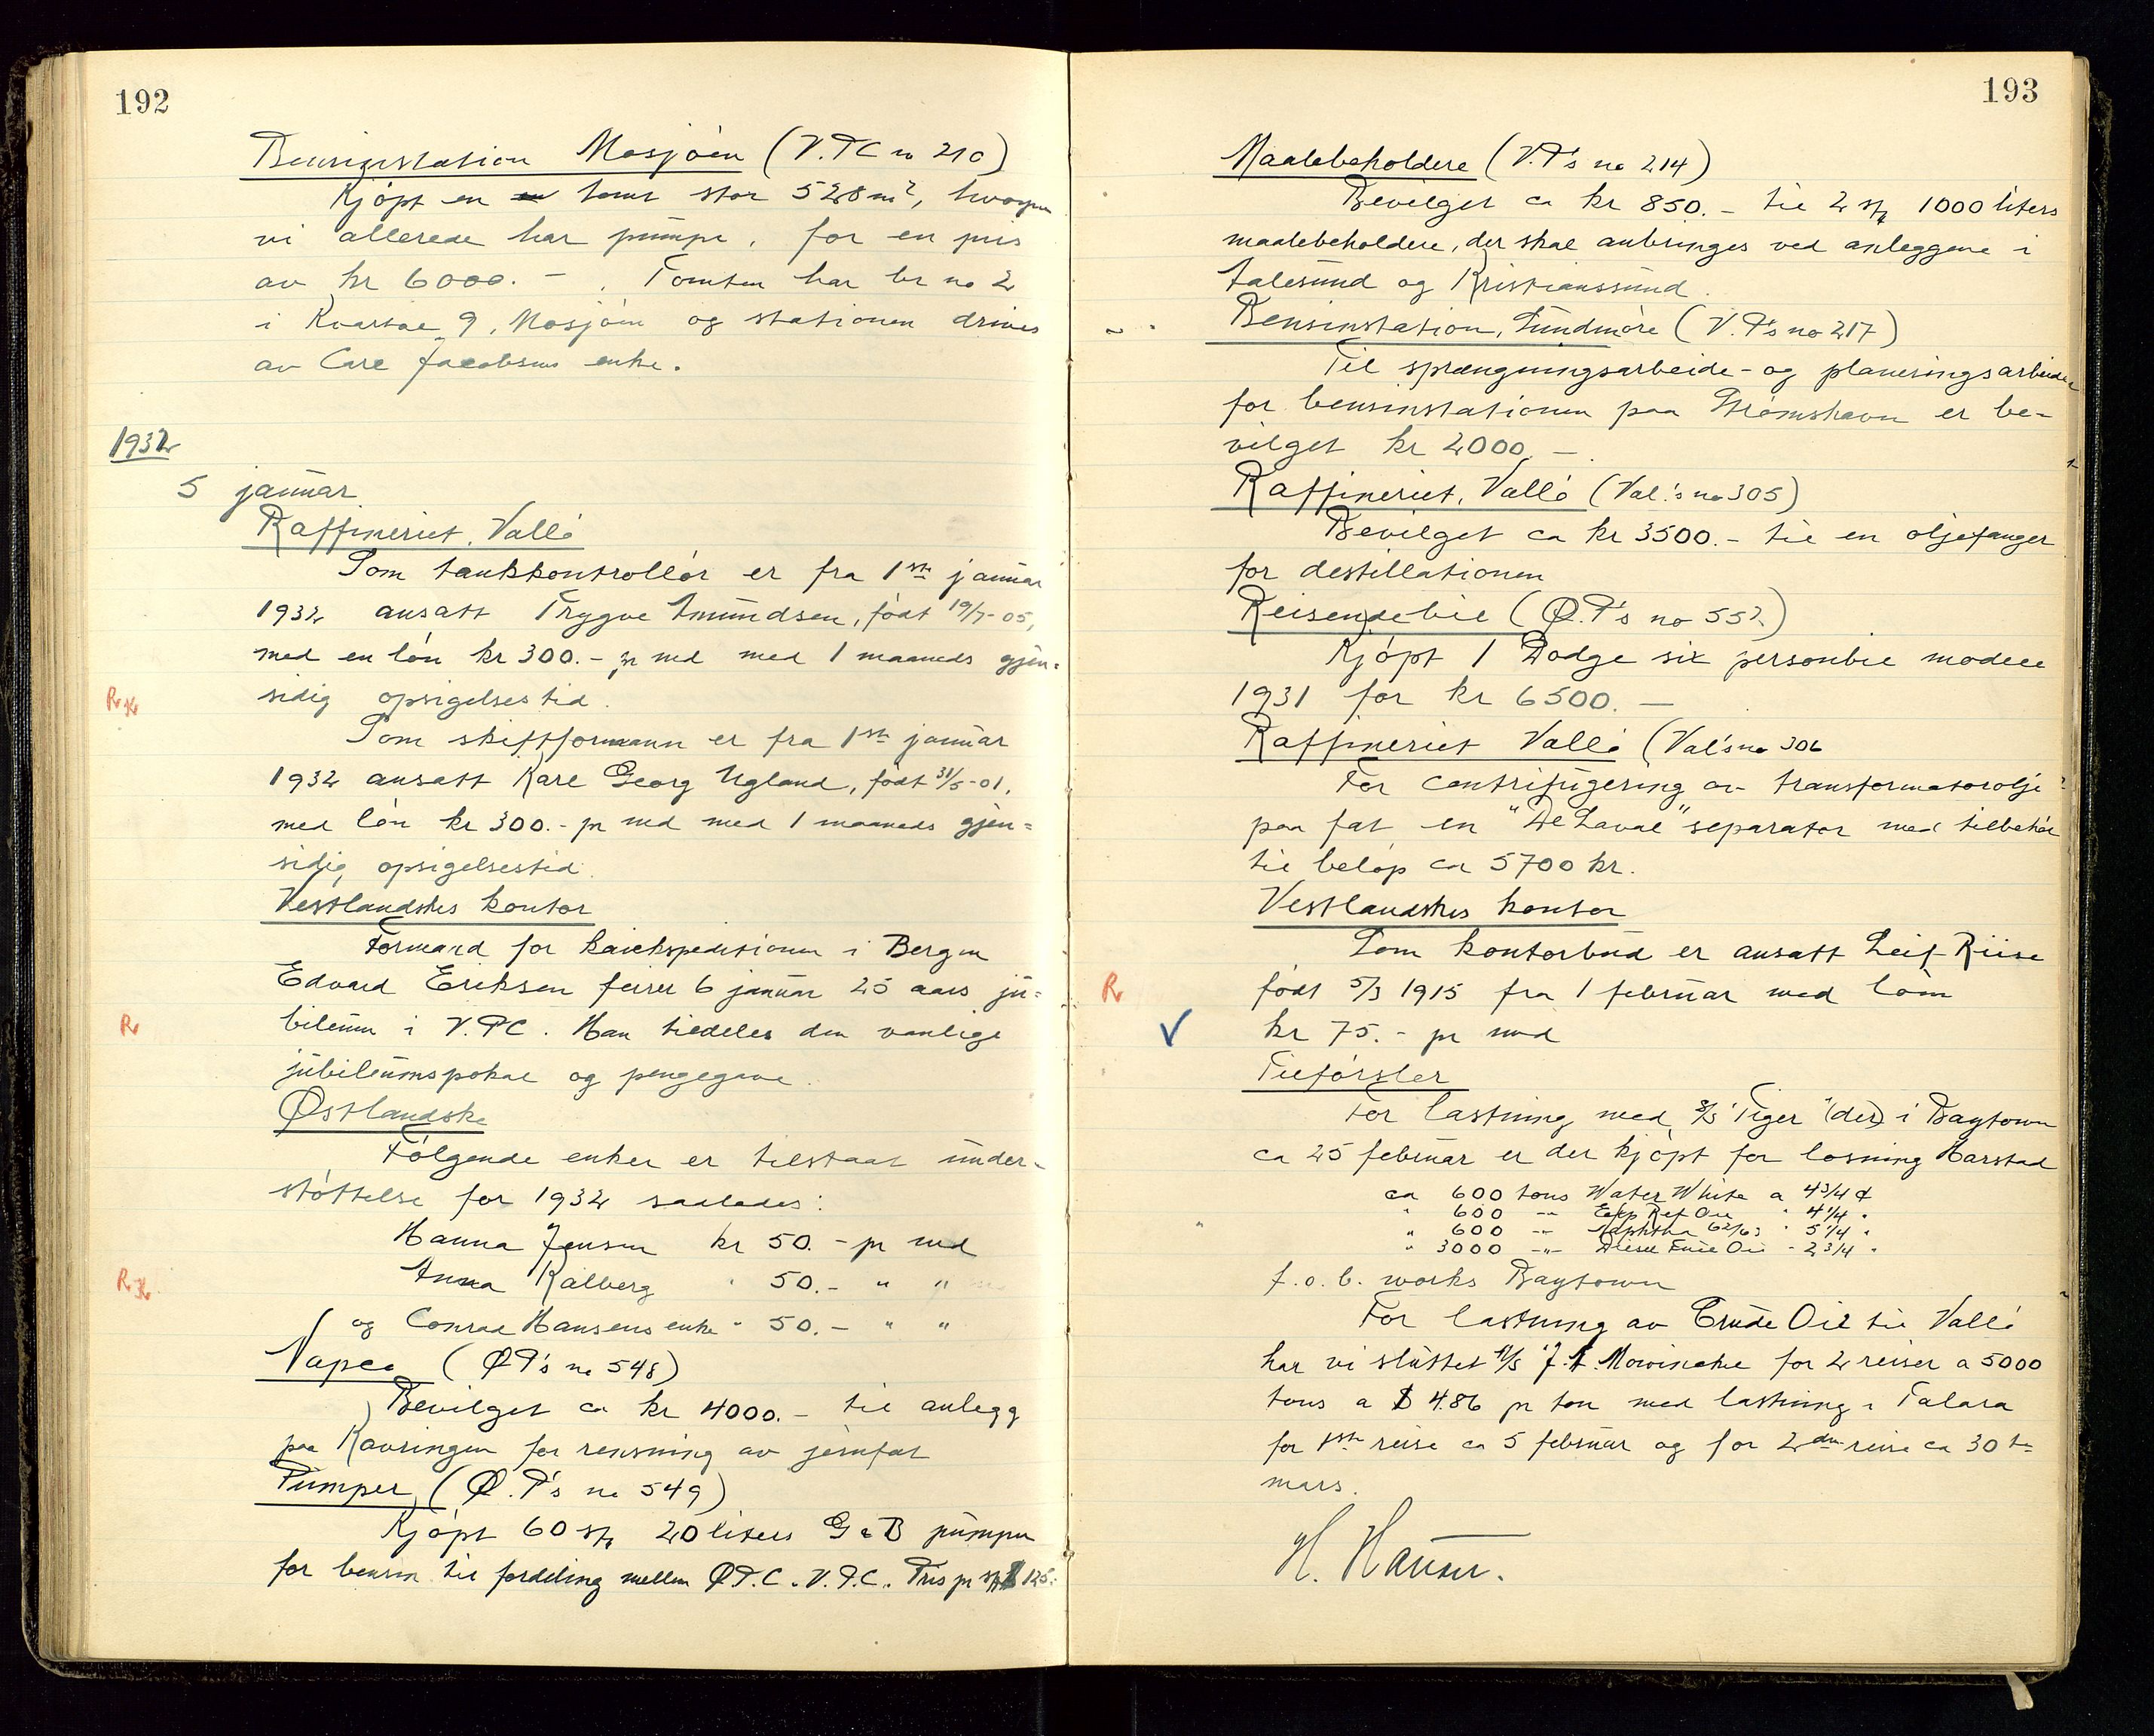 192
Bensinstation Mosjøen (V.P.C no 210)
Kjøpt en tomt stor 528 m², hvorpaa
vi allerede har pumpe, for en pris
av kr 6000.- . Tomten har br no 2
i Kvartal 9, Mosjøen og stationen drives
av Carl Jacobsens enke.
1932
5 januar
Raffineriet, Vallø
Som tankkontrollør er fra 1ste januar
1932 ansatt Trygve Amundsen, født 19/7-05,
med en løn kr 300.- pr md med 1 maaneds gjen-
sidig opsigelsestid.
Som skiftformann er fra 1ste januar
1932 ansatt Kåre Georg Ugland, født 31/5-01,
med løn kr 300.- pr md med 1 maaneds gjen=
sidig opsigelsestid.
Vestlandskes kontor
Formand for kaiekspeditionen i Bergen
Edvard Eriksen feirer 6 januar 25 aars ju=
bileum i V.P.C. Han tildeles den vanlige
jubileumspokal og pengegave.
Østlandske
Følgende enker er tilstaat under-
støttelse for 1932 saaledes:
Hanna Jensen kr 50.- pr md
Anna Kalberg " 50.- " "
og Conrad Hansens enke " 50.- " "
Napco (Ø.P's no 548)
Bevilget ca kr 4000.- til anlegg
paa Kavringen for rensning av jernfat
Pumper (Ø.P's no 549)
Kjøpt 60 stk 20 liters G & B pumper
for bensin til fordeling mellem Ø.P.C. V.P.C. Pris pr stk $ 125.-
193
Maalebeholdere (V.P's no 214)
Bevilget ca kr 850.- til 2 stk 1000 liters
maalebeholdere, der skal anbringes ved anleggene i
Aalesund og Kristianssund.
Bensinstation, Sundmøre (V.P's no 217)
Til sprængningsarbeide- og planeringsarbeider
for bensinstationen paa Strømshavn er be-
vilget kr 2000.-
Raffineriet, Vallø (Val's no 305)
Bevilget ca kr 3500.- til en oljefanger
for destillationen
Reisendebil (Ø.P's no 552)
Kjøpt 1 Dodge six personbil modell
1931 for kr 6500.-
Raffineriet Vallø (Val's no 306
For centrifugering av transformatorolje
paa fat en "De Laval" separator med tilbehør
til beløp ca 5700 kr.
Vestlandskes kontor
Som kontorbud er ansatt Leif Riise
født 5/3 1915 fra 1 februar med løn
kr 75.- pr md
Tilførsler
For lastning med S/S "Tiger" (der) i Baytown
ca 25 februar er der kjøpt for losning Harstad
ca 600 tons Water White a 4 3/4 ¢
" 600 -"- Exp Ref Oil " 4 1/4 "
" 600 -"- Naphtha 62/63 " 5 1/4 "
" 3000 -"- Diesel Fuel Oil " 2 3/4 "
f.o.b. works Baytown
For lastning av Crude Oil til Vallø
har vi sluttet M/S "J.A. Mowinckel for 2 reiser a 5000
tons a $ 4.86 pr ton med lastning i Talara
for 1ste reise ca 5 februar og for 2den reise ca 30te
mars.
H. Hansen.